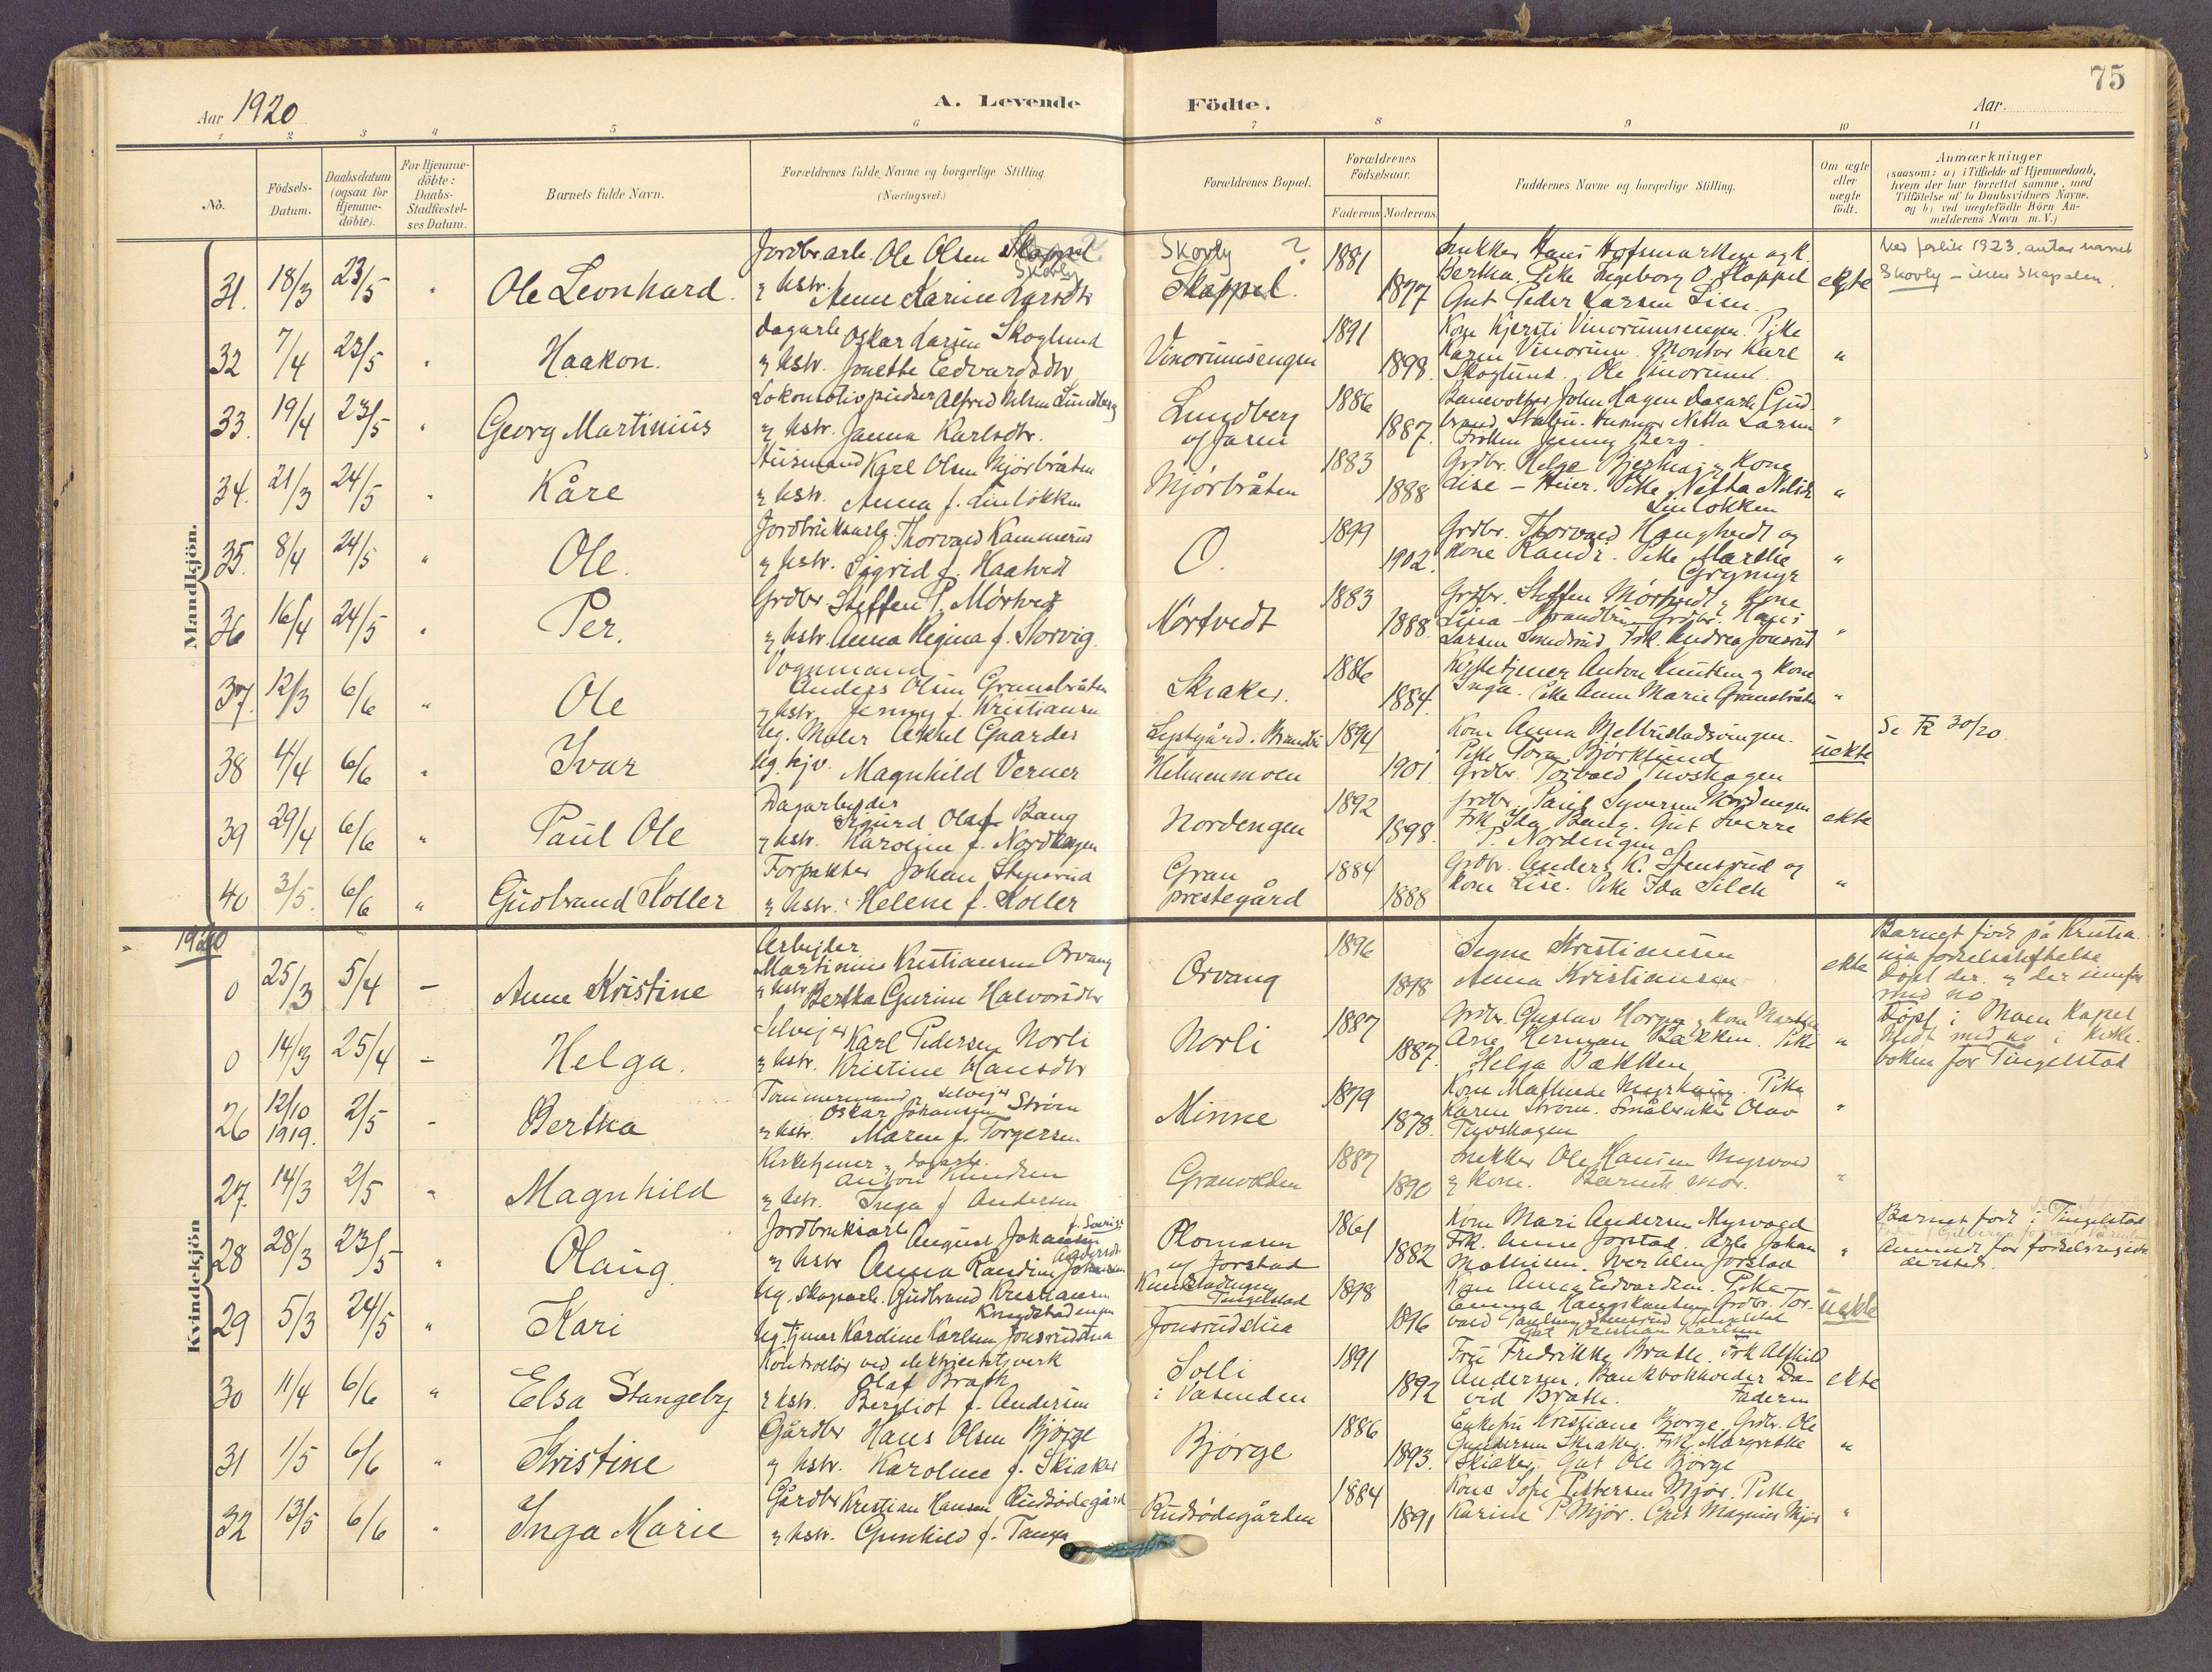 75
Aar 1920
A. Levende Födte.
Aar.
1 2 3 4 5 6 7 8 9 10 11
No.
Födsels-Datum.
Daabsdatum (ogsaa for Hjemme-döbte).
For Hjemme-döbte: Daabs-Stadfæstel-ses Datum.
Barnets fulde Navn.
Forældrenes fulde Navne og borgerlige Stilling (Næringsvei.)
Forældrenes Bopæl.
Forældrenes Födselsaar.
Faderens Moderens
Faddernes Navne og borgerlige Stilling.
Om ægte eller uægte födt.
Anmærkninger
(saasom: a) i Tilfælde af Hjemmedaab,
hvem der har forrettet samme, med
Tilföielse af to Daabsvidners Navne.
og b) ved uægtefödte Börn An-
melderens Navn m. V.)
Mandkjön.
31. 18/3 23/5 " Ole Leonhard.
Jordbr.arb. Ole Olsen Skappel ?
Skovly
og hstr. Anne Karine Larsdtr
Skovly ?
Skappel.
1881 1877
Snekker Hans Hofsmarken og k.
Bertha. Pike Ingeborg O. Skappel
Gut Peder Larsen Lien.
ekte
antar navnet
Skovly
32 7/4 23/5 " Haakon.
Dagarb Oskar Larsen Skoglund
og hstr. Jonette Edvardsdtr
Vinorumsengen
1891 1898.
Kone Kjersti Vinorumsengen. Pike
Karen Vinorum. Montør Karl
Skoglund. Ole Vinorum.
"
33. 19/4 23/5 " Georg Martinius
Lokomotivpudser Alfred Nilsen Lundberg
og hstr. Janna Karlsdtr.
Lundberg
af Jaren
1886 1887.
Banevokter John Hagen Dagarb. Gud-
brand Netta Larsen
Frøken Jenny Berg.
"
34. 21/3 24/5 " Kåre
Husmand Karl Olsen Mjørbråten
og hstr. Anna f. Linløkken
Mjørbråten
1883 1888
Grdbr. Helge og Kone
Lise Pike Netta Nilsdtr
Linløkken
"
35. 8/4 24/5 " Ole.
Jordbruksarb. Thorvald Kammerud
og hstr. Sigrid f. Haatvedt
O.
1899 1902.
Grdbr. Thorvald Haugtvedt og
Kone Randi. Pike Marthe
Grymyr
"
36 16/4 24/5 " Per.
Grdbr. Steffen P. Mørtvedt
og hstr. Anna Regina f. Storvig.
Mørtvedt
1883 1888.
Grdbr. Steffen Mørtvedt og Kone
Lina Grdbr. Hans
Larsen Frk. Andrea Jonsrud
"
37. 12/3 6/6 " Ole
Vognmand
Anders Olsen Gransbråten
og hstr. Jenny f. Kristiansen
Skiaker.
1886 1884.
Kirketjener Anton Knutsen og Kone
Inga. Pike Anne Marie Gransbråten
"
38 4/4 6/6 " Ivar
Ug. Maler Aksel Gaarder
Ug. tjv. Magnhild Verner
Lystgård. Brandbu
Helmenmoen
1894 1901
Kone Anna Melbustadsvingen.
Pike Tora Bjørklund
Grdbr. Torvald Tuvshagen
uekte
Se 30/20.
39 29/4 6/6 " Paul Ole
Dagarbeider
Sigurd Olaf Bang
og hstr. Karoline f. Nordengen
Nordengen
1892 1898.
Grdbr. Paul Syversen Nordengen
Frk. Ida Bang. Gut Sverre
P. Nordengen
ekte
40 3/5. 6/6 " Gudbrand Koller
Forpakter Johan Stensrud
og hstr. Helene f. Koller
Gran prestegård
1884 1888
Grdbr. Anders K. Stensrud og
Kone Lise. Pike Ida
"
Kvindekjön
1920
0 25/3 5/4 – Anne Kristine
Arbejder
Martinius Kristiansen Orvang
og hstr Bertha Gurine Halvorsdtr
Orvang
1896 1898
Signe Kristiansen
Anna Kristiansen
ekte
Barnet født på Kristia-
nia fødselsstiftelse
døpt der. og der innført
med no
0 14/3 25/4 – Helga.
Selvejer Karl Pedersen Norli
og hstr. Kristine Hansdtr
Norli
1887 1887.
Grdbr. Gustav og Kone Marthe
Herman Bakken. Pike
Helga Bakken
"
Døpt i Moen Kapel
Nedt med no i kirke-
boken for Tingelstad
26 12/10 1919. 2/5 – Bertha
Tømmermand og selvejer
Oskar Johansen Strøm
og hstr. Maren f. Torgersen
Minne
1879 1878.
Kone Mathilde Pike
Karen Strøm. Småbruker Olav
Tuvshagen
"
27. 14/3 2/5 " Magnhild
Kirketjener og dagarb.
Anton Knudsen
og hstr. Inga f. Andersen
Granvolden
1887 1890
Snekker Ole Hansen Myrvold
og Kone. Barnets mor.
"
28 28/3 23/5 " Olaug.
Jordbruksarb August Johansen f. Sverige
og hstr Anna Randine Andersdtr Johansen
Plomasen
og Jorstad
1861 1882
Kone Mari Andersen Myrvold
Frk. Anne Jorstad. Arb. Johan
Mathisen. Iver Alm Jorstad
"
Barnet født i Tingelstad
Anmeldt for fødselsregistr.
dersteds.
29 5/3 24/5 " Kari
Ug. Skogarb. Gudbrand Kristiansen
Knudstadengen
Ug. tjener Kardine Karlsen Jonsrudstua
Knudstadengen
Tingelstad
Jonsrudstua
1898 1896
Kone Anna Edvardsen. Pike
Emma Grdbr. Tor-
vald Paulsen
Gut Kristian Karlsen
uekte
30 11/4 6/6 " Elsa Stangeby
Kontrollør ved elektricitetsverk
Olaf Brath
og hstr. Bergliot f. Andersen
Solli
i Vasenden
1891 1892
Fru Fredrikke Brath. Frk Alfhild
Andersen. Bankbokholder Da-
vid Brath. Faderen
ekte
31 1/5 6/6 " Kristine
Gårdbr Hans Olsen Bjørge
og hstr. Karoline f. Skiaker
Bjørge
1886 1893.
Enkefru Kristiane Bjørge. Grdbr. Ole
Gundersen Skiaker. Frk. Margrethe
Skiaker. Gut Ole Bjørge
"
32 13/5 6/6 " Inga Marie
Gårdbr Kristian Hansen Rudsødegård
og hstr. Gunhild f. Tangen
Rudsødegården
1884 1891
Kone Sofie Pettersen Mjør. Pike
Karine P. Mjør. Gut Magnus Mjør
"